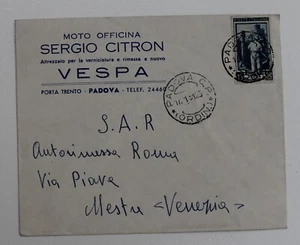 MOTO OFFICINA
SERGIO CITRON
Attrezzato per la verniciatura e rimessa a nuovo
VESPA
PORTA TRENTO - PADOVA - TELEF. 24460
PADOVA C.P.
(ORDIN)
S.A.R
Autorimessa Roma
Via Piava
Mestre (Venezia)